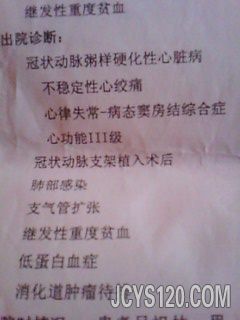 继发性重度贫血
出院诊断:
冠状动脉粥样硬化性心脏病
不稳定性心绞痛
心律失常-病态窦房结综合症
心功能III级
冠状动脉支架植入术后
肺部感染
支气管扩张
继发性重度贫血
低蛋白血症
消化道肿瘤待
JCYS120.COM